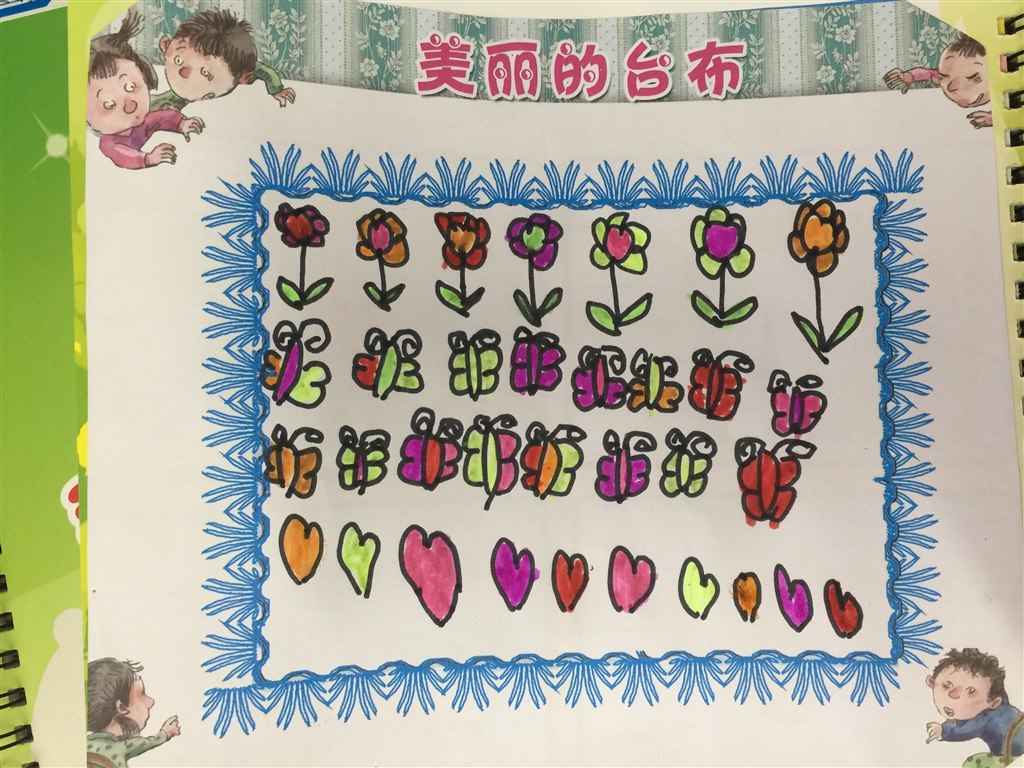 美丽的台布